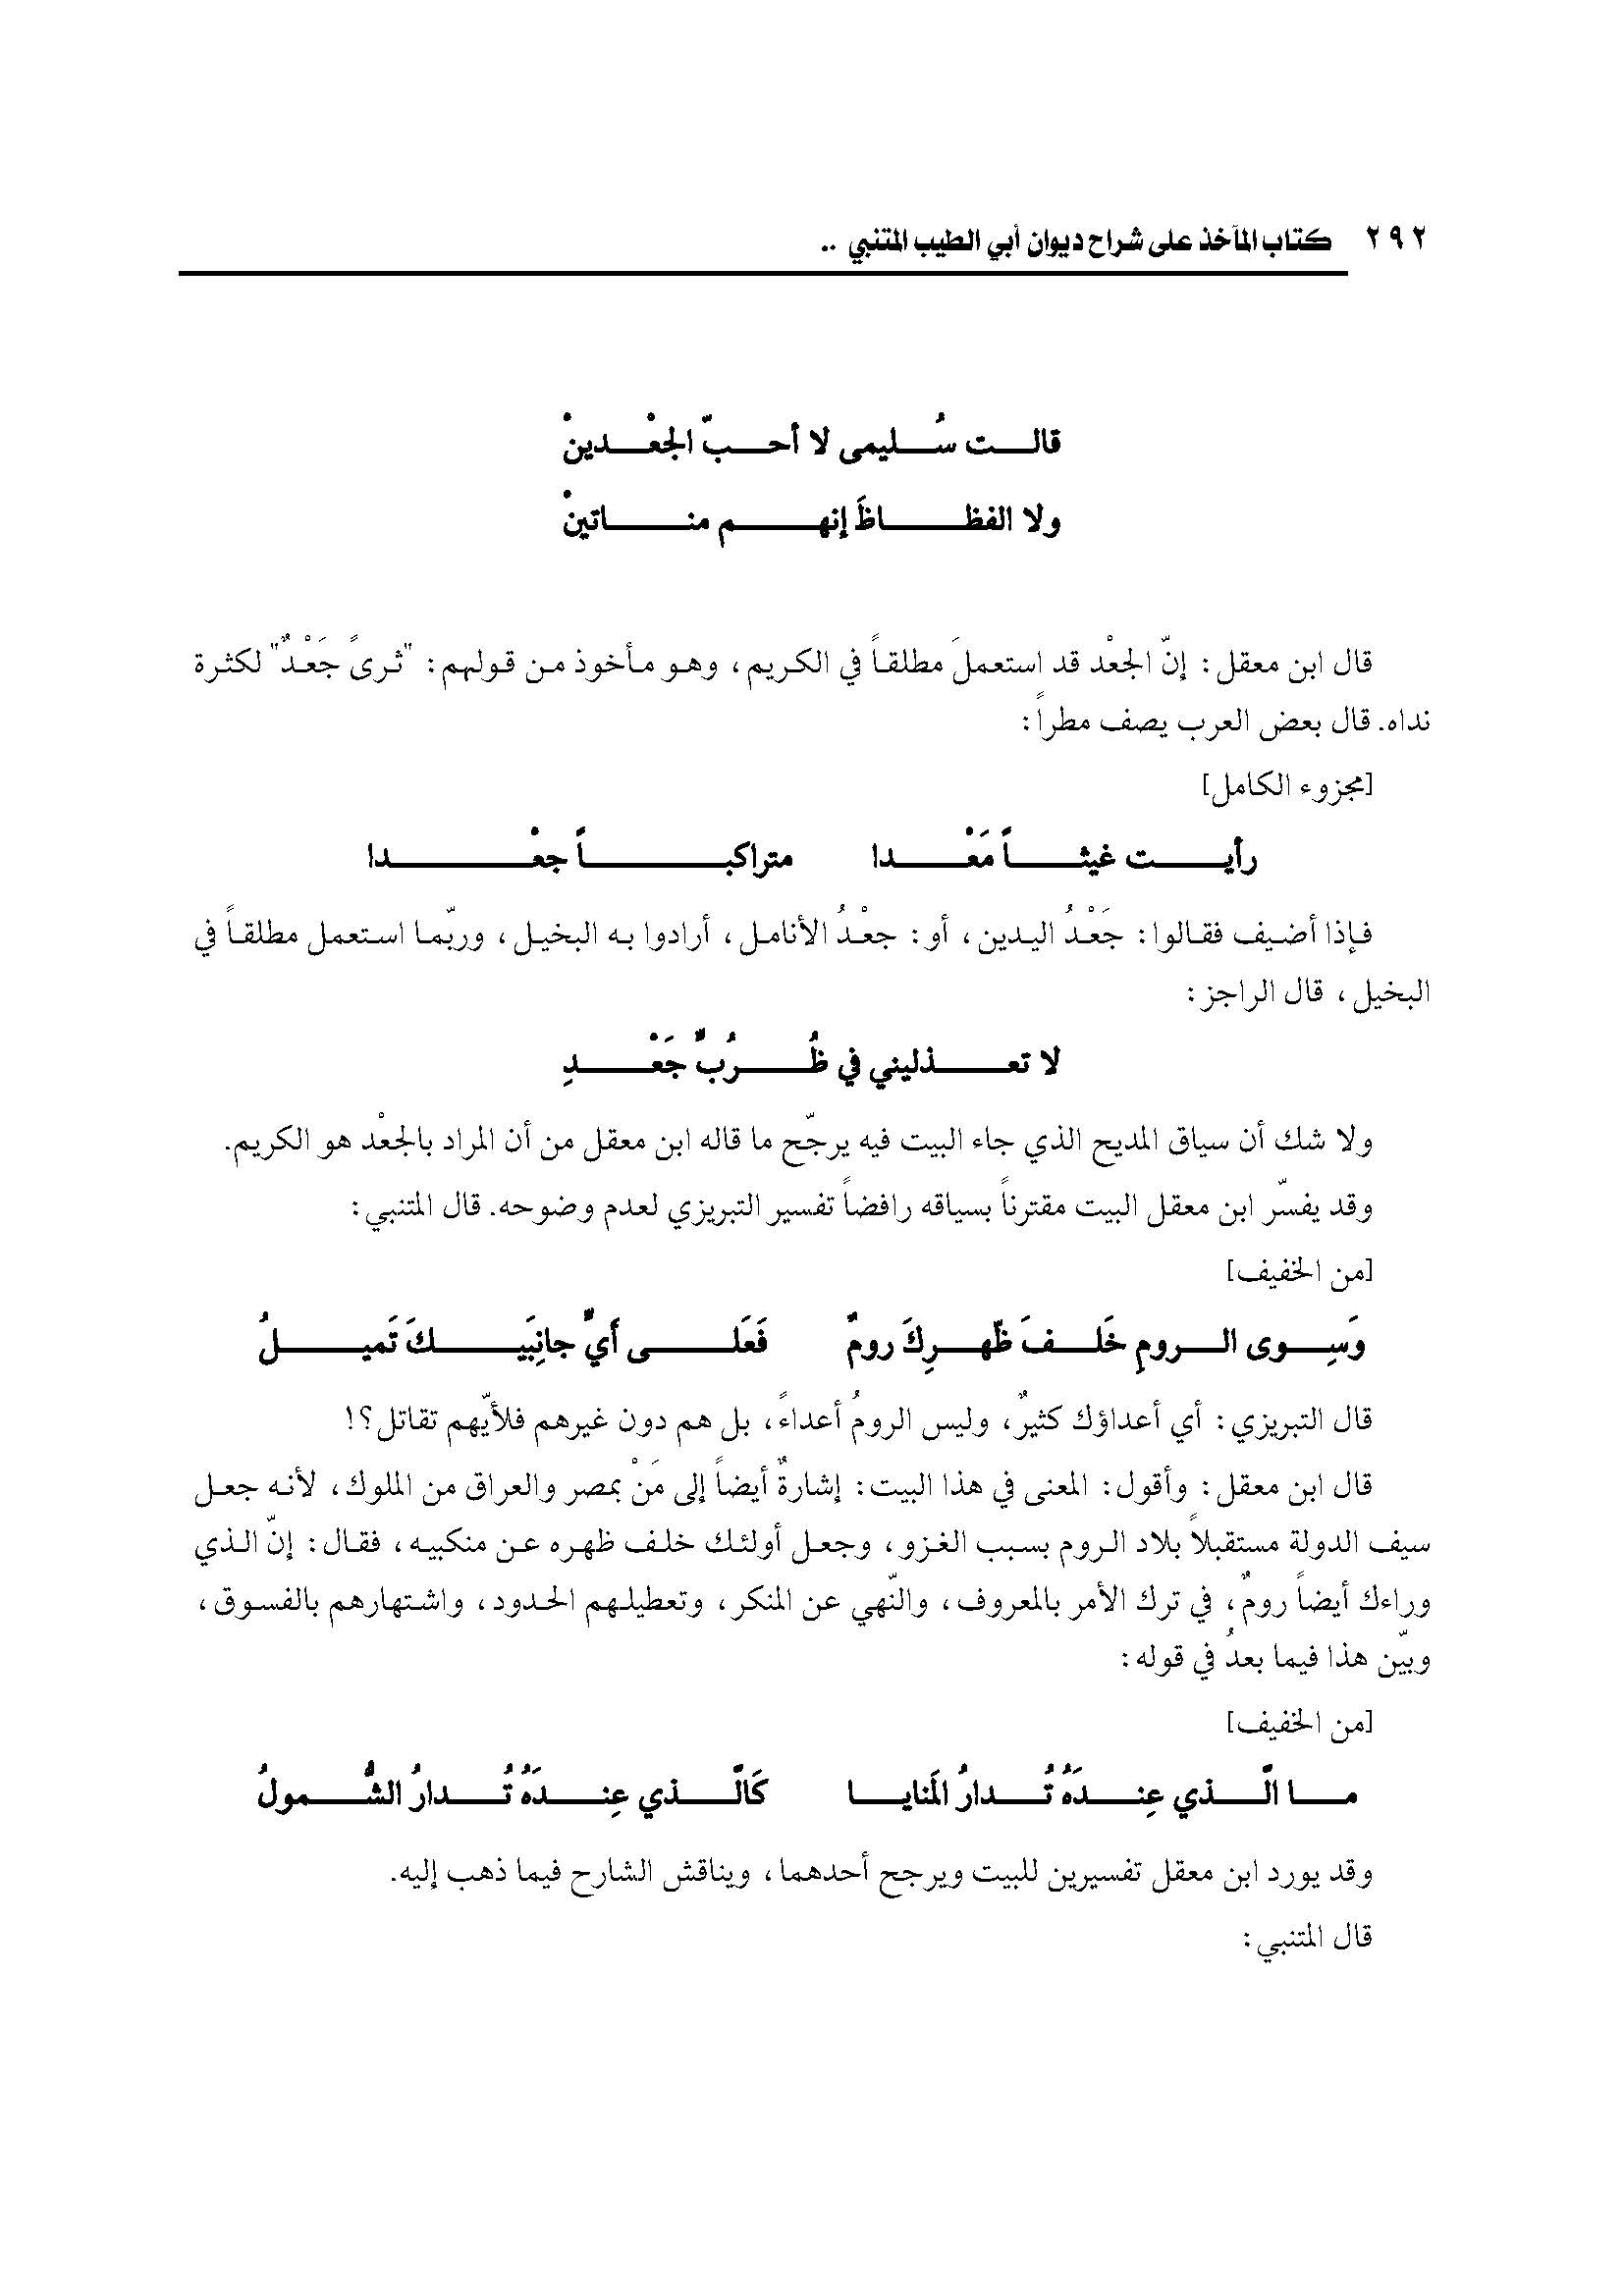 ٢٩٢ كتاب المآخذ على شراح ديوان أبي الطيب المتنبي ..
قالت سُليمى لا أحبّ الجعْدينْ
ولا الفظاظَ إنهم مناتينْ
قال ابن معقل: إنّ الجعْد قد استعملَ مطلقاً في الكريم، وهو مأخوذ من قولهم: "ثرىً جَعْدٌ" لكثرة
نداه. قال بعض العرب يصف مطراً:
[مجزوء الكامل]
رأيت غيثاً مَعْدا متراكباً جعْدا
فإذا أضيف فقالوا: جَعْدُ اليدين، أو: جعْدُ الأنامل، أرادوا به البخيل، وربّما استعمل مطلقاً في
البخيل، قال الراجز:
لا تعذليني في ظُرُبٌ جَعْدِ
ولا شك أن سياق المديح الذي جاء البيت فيه يرجّح ما قاله ابن معقل من أن المراد بالجعْد هو الكريم.
وقد يفسّر ابن معقل البيت مقترناً بسياقه رافضاً تفسير التبريزي لعدم وضوحه. قال المتنبي:
[من الخفيف]
وَسِوى الرومِ خَلفَ ظَهرِكَ رومٌ فَعَلى أَيِّ جانِبَيكَ تَميلُ
قال التبريزي: أي أعداؤك كثيرٌ، وليس الرومُ أعداءً، بل هم دون غيرهم فلأيّهم تقاتل؟!
قال ابن معقل: وأقول: المعنى في هذا البيت: إشارةٌ أيضاً إلى مَنْ بمصر والعراق من الملوك، لأنه جعل
سيف الدولة مستقبلاً بلاد الروم بسبب الغزو، وجعل أولئك خلف ظهره عن منكبيه، فقال: إنّ الذي
وراءك أيضاً رومٌ، في ترك الأمر بالمعروف، والنّهي عن المنكر، وتعطيلهم الحدود، واشتهارهم بالفسوق،
وبيّن هذا فيما بعدُ في قوله:
[من الخفيف]
ما الَّذي عِندَهُ تُدارُ المَنايا كَالَّذي عِندَهُ تُدارُ الشُّمولُ
وقد يورد ابن معقل تفسيرين للبيت ويرجح أحدهما، ويناقش الشارح فيما ذهب إليه.
قال المتنبي: